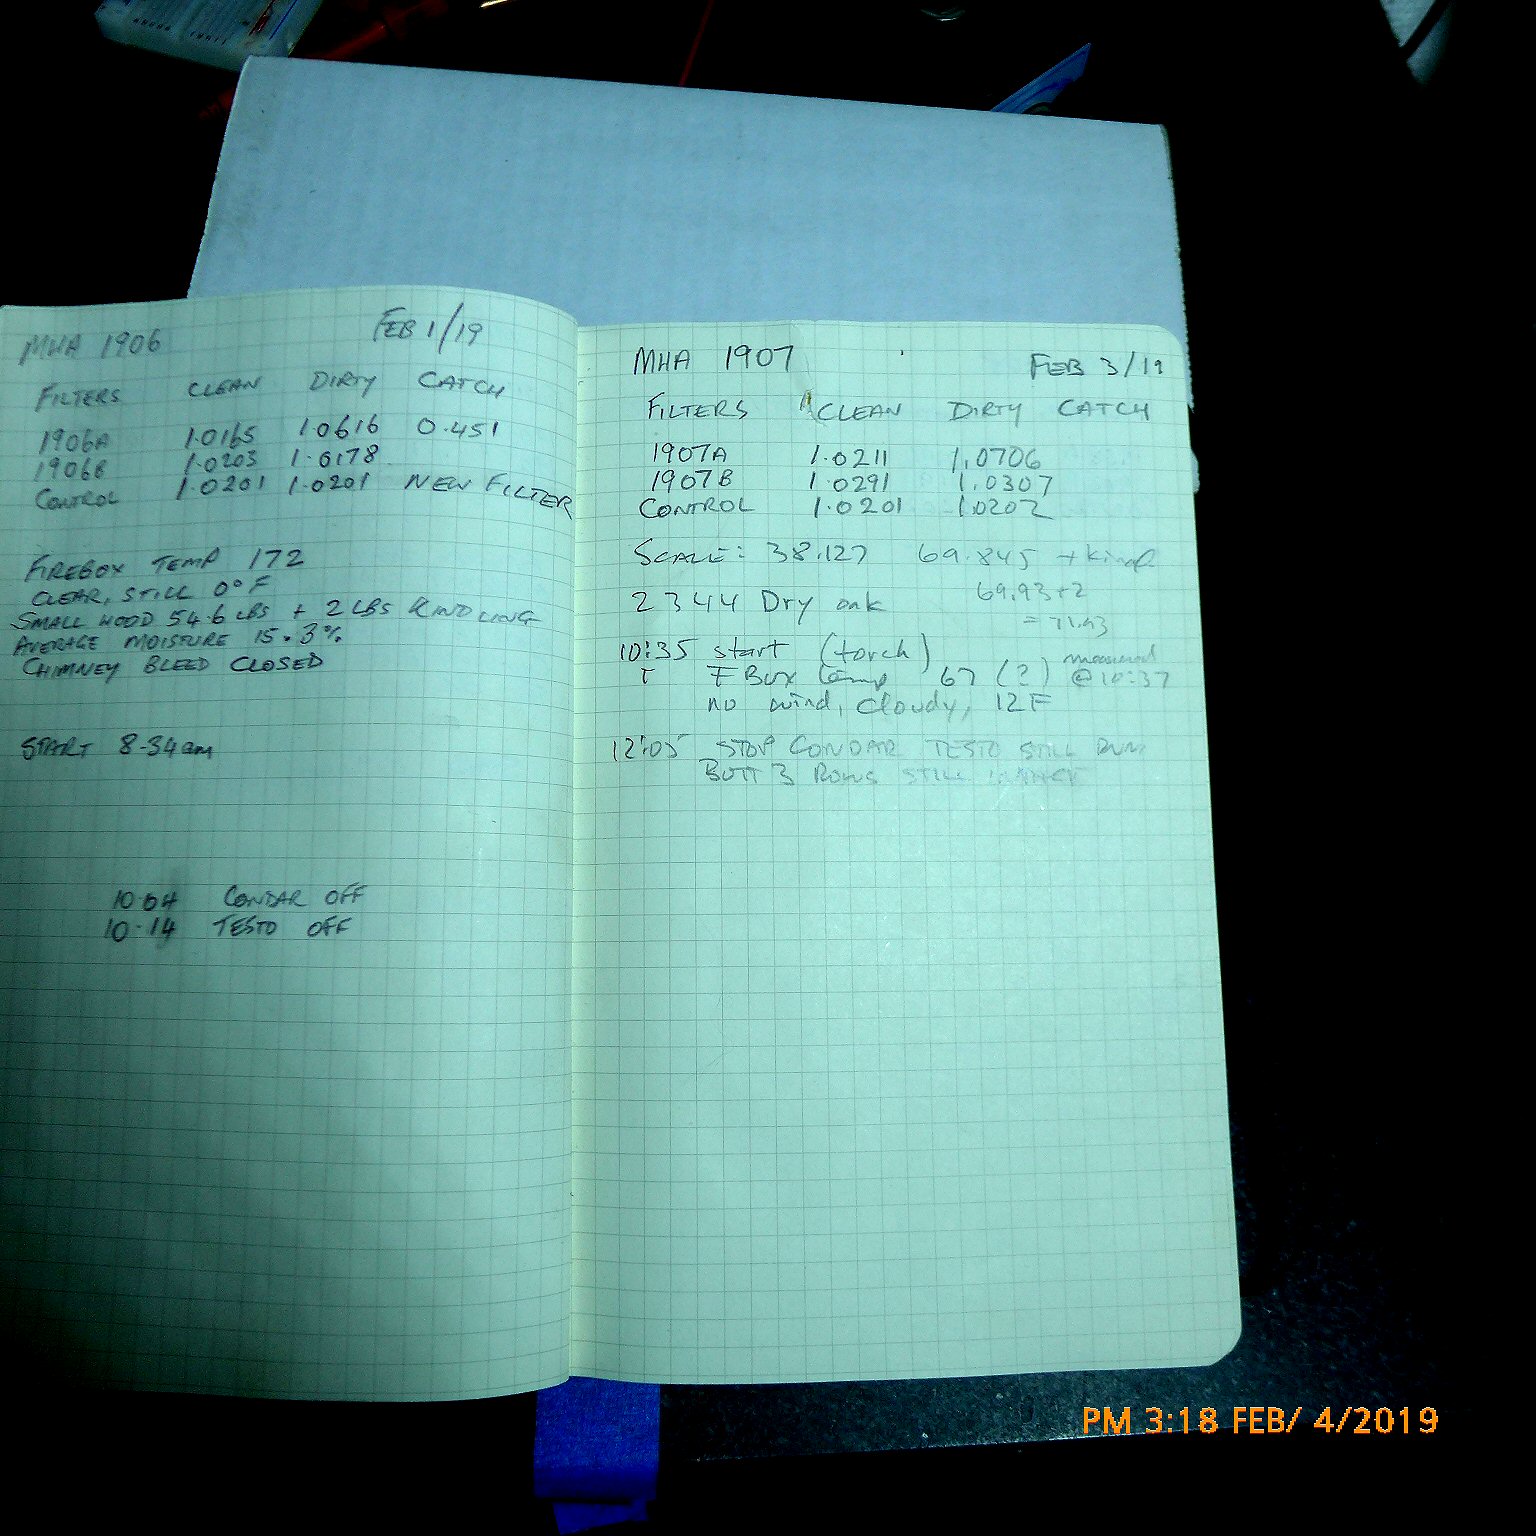 MHA 1906 FEB 1/19
FILTERS CLEAN DIRTY CATCH
1906A 1.0165 1.0616 0.451
1906B 1.0203 1.0178
CONTROL 1.0201 1.0201 NEW FILTER
FIREBOX TEMP 172
CLEAR, STILL 0°F
SMALL WOOD 54.6 LBS + 2 LBS KINDLING
AVERAGE MOISTURE 15.3%
CHIMNEY BLEED CLOSED
START 8:34am
10:04 CONDAR OFF
10:14 TESTO OFF
MHA 1907 FEB 3/19
FILTERS CLEAN DIRTY CATCH
1907A 1.0211 1.0706
1907B 1.0291 1.0307
CONTROL 1.0201 1.0202
SCALE: 38.127 69.845 + kindl
69.93+2
= 71.93
2344 Dry oak
10:35 start (torch)
F Box temp 67 (?) measured @ 10:37
no wind, cloudy, 12F
12:05 STOP CONDAR TESTO STILL RUN
BUTT 3 ROWS STILL INTACT
PM 3:18 FEB/ 4/2019